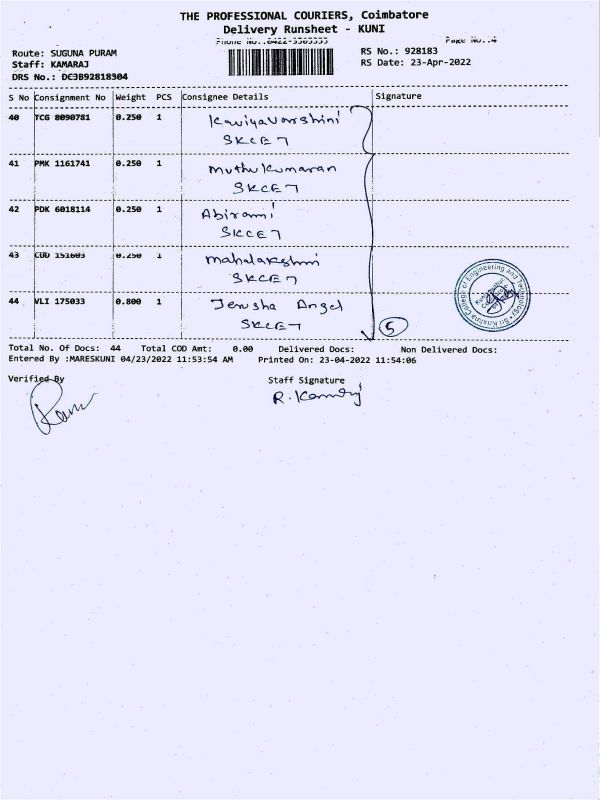 THE PROFESSIONAL COURIERS, Coimbatore
Delivery Runsheet - KUNI
Phone No.:0422-3563333 Page No.:4
Route: SUGUNA PURAM RS No.: 928183
Staff: KAMARAJ RS Date: 23-Apr-2022
DRS No.: DC3B92818304
S No Consignment No Weight PCS Consignee Details Signature
40 TCG 8090781 0.250 1 Kaviyavarshini
SKCET
41 PMK 1161741 0.250 1 Muthukumaran
SKCET
42 PDK 6018114 0.250 1 Abirami
SKCET
43 CUD 151603 0.250 1 Mahalakshmi
SKCET
44 VLI 175033 0.800 1 Jerusha Angel
SKCET
5
Sri Krishna College of Engineering and Technology
Total No. Of Docs: 44 Total COD Amt: 0.00 Delivered Docs: Non Delivered Docs:
Entered By :MARESKUNI 04/23/2022 11:53:54 AM Printed On: 23-04-2022 11:54:06
Verified By Staff Signature
R. Kamaraj